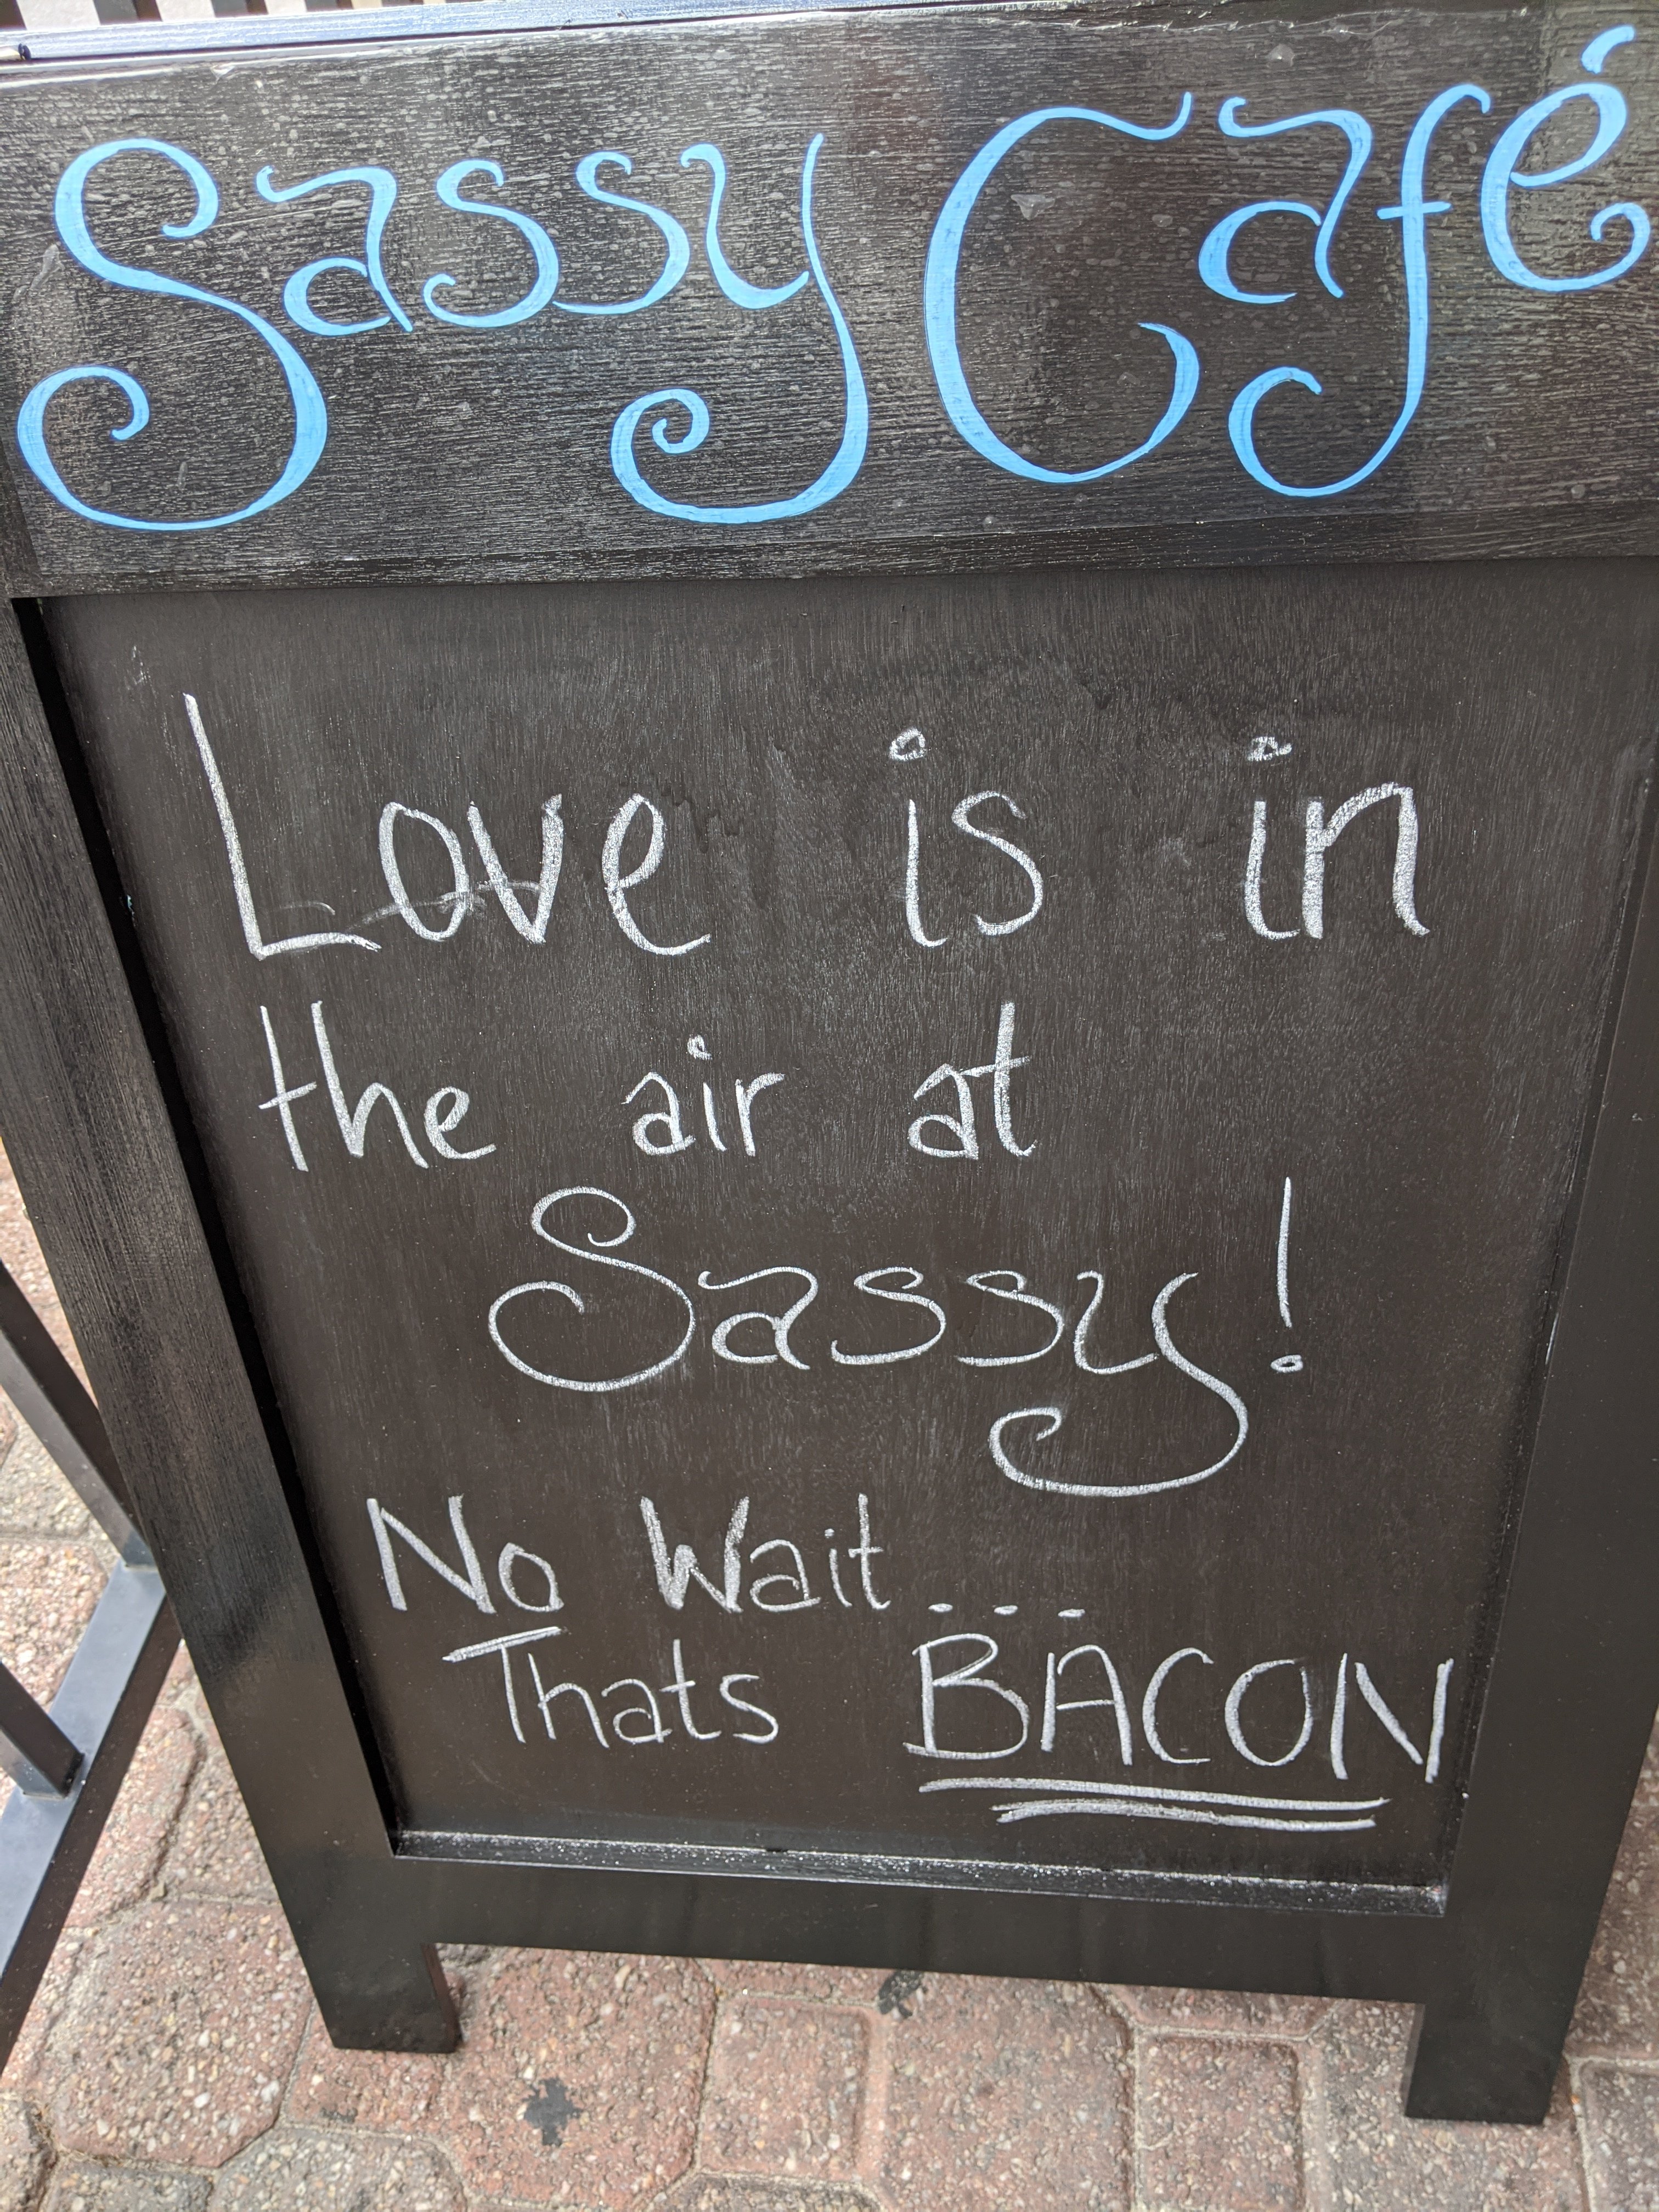 Sassy Café
Love is in
the air at
Sassy!
No Wait...
Thats BACON